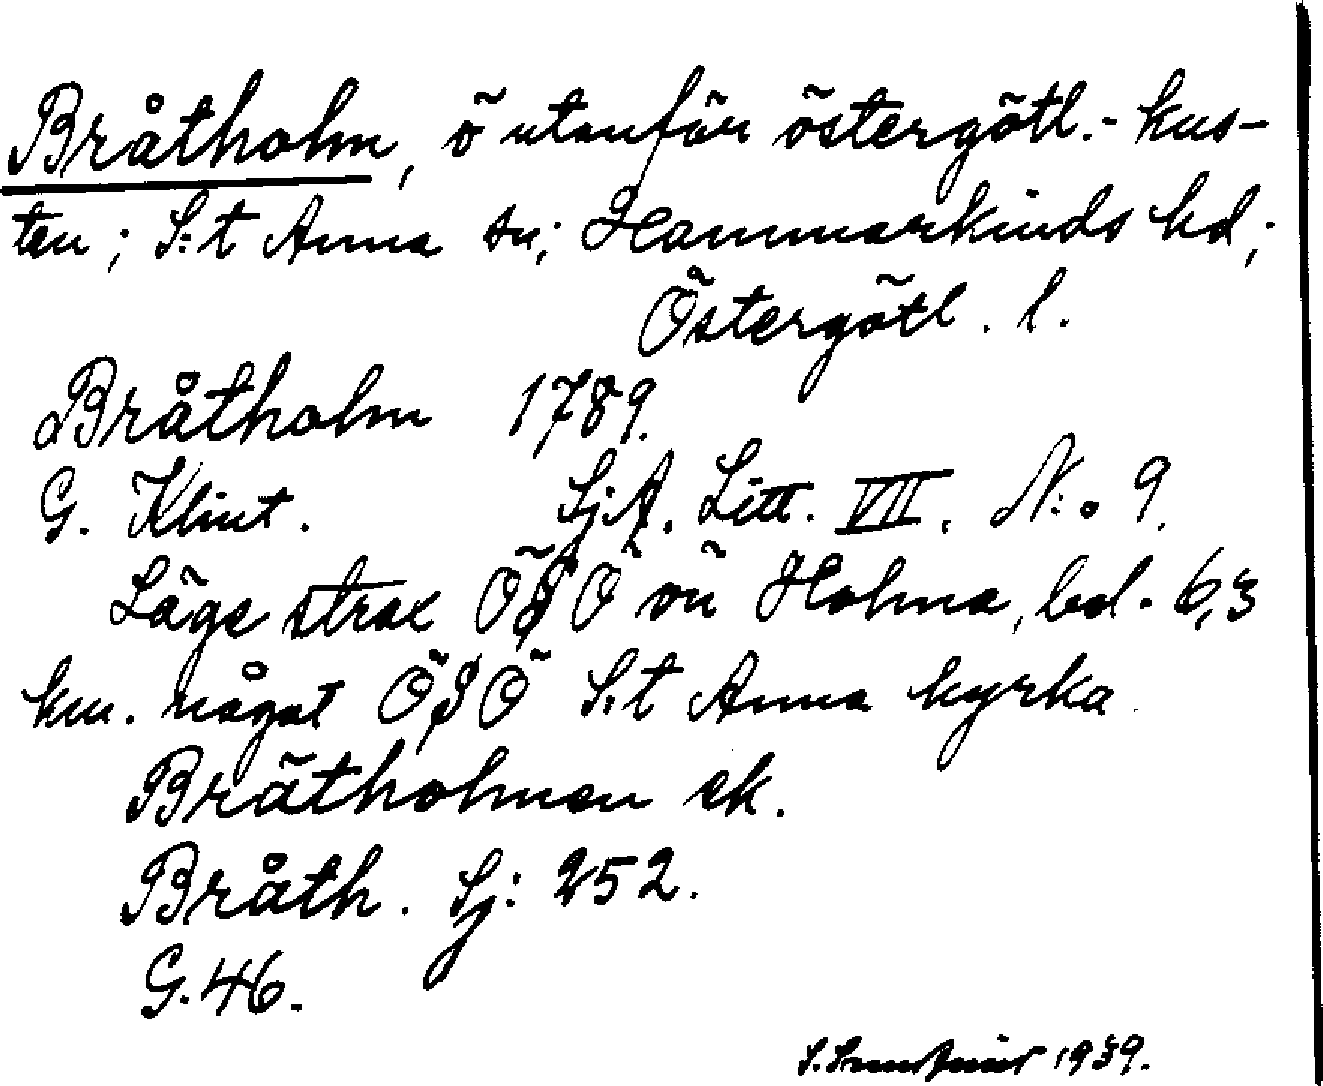 Bråtholm, ö utanför östergötl.- kus-
ten; S:t Anna sn; Hammarkinds hd;
Östergötl. l.
Bråtholm 1789.
G. Klint. SjA. Litt. VII. N:o 9.
Läge strax ÖSÖ om Holma, bel. 6,3
km. något ÖSÖ S:t Anna kyrka.
Bråtholmen ek.
Bråth. Sj: 252.
G. 46.
S. 1939.